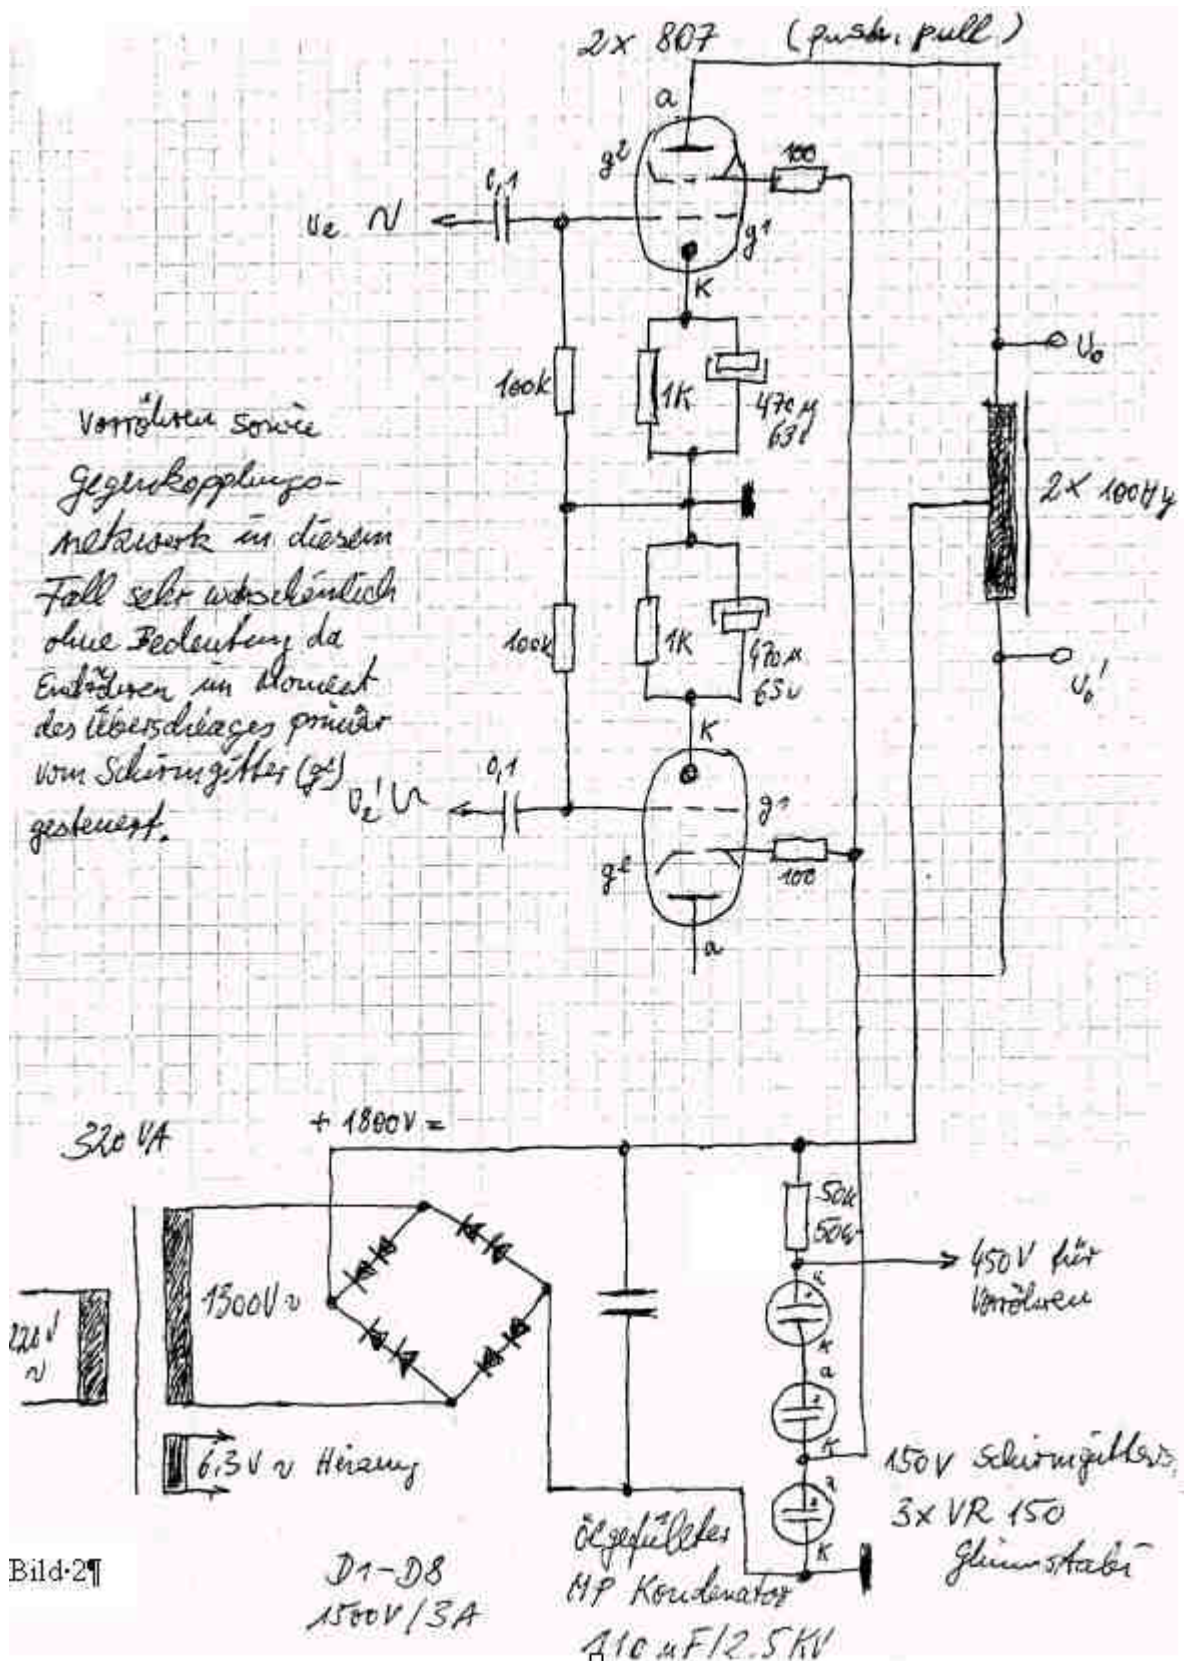 2x 807 (push, pull)
a
g2
100
0,1
Ue
g1
K
100k
1K
470µ
63v
Uo
2x 100Hy
Vorröhren sowie
Gegenkopplungs-
netzwerk in diesem
Fall sehr warscheinlich
ohne Bedeutung da
Endröhren im Moment
des Überschlages primär
vom Schirmgitter (g2)
gesteuert.
100k
1K
470µ
63v
Uo'
K
0,1
Ue'
g1
g2
100
a
320 VA
+ 1800V =
50k
50W
450V für
Vorröhren
220V
~
1300V ~
a
K
a
K
6,3V ~ Heizung
150V
a
3x VR 150
Glimmstabi
K
ölgefülltes
MP Kondenator
10 µF/2.5KV
D1-D8
1500V/3A
Bild·2¶